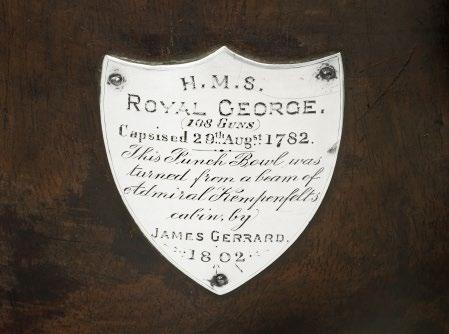 H.M.S.
ROYAL GEORGE.
(108 GUNS)
Capsised 29th Augst 1782.
This Punch Bowl was
turned from a beam of
Admiral Kempenfelts
cabin, by
JAMES GERRARD.
1802